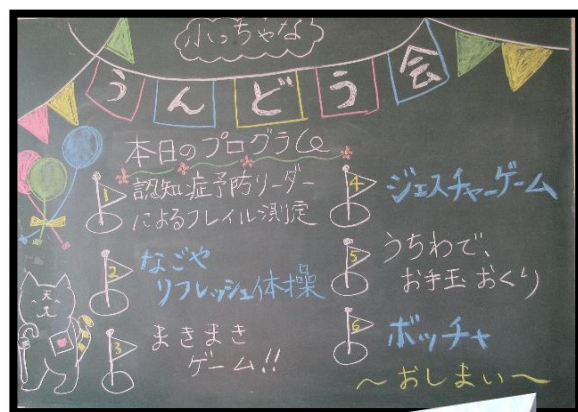 小っちゃな
うんどう会
本日のプログラム
1
認知症予防リーダー
によるフレイル測定
2
なごや
リフレッシュ体操
3
まきまき
ゲーム!!
4
ジェスチャーゲーム
5
うちわで、
お手玉おくり
6
ボッチャ
～おしまい～